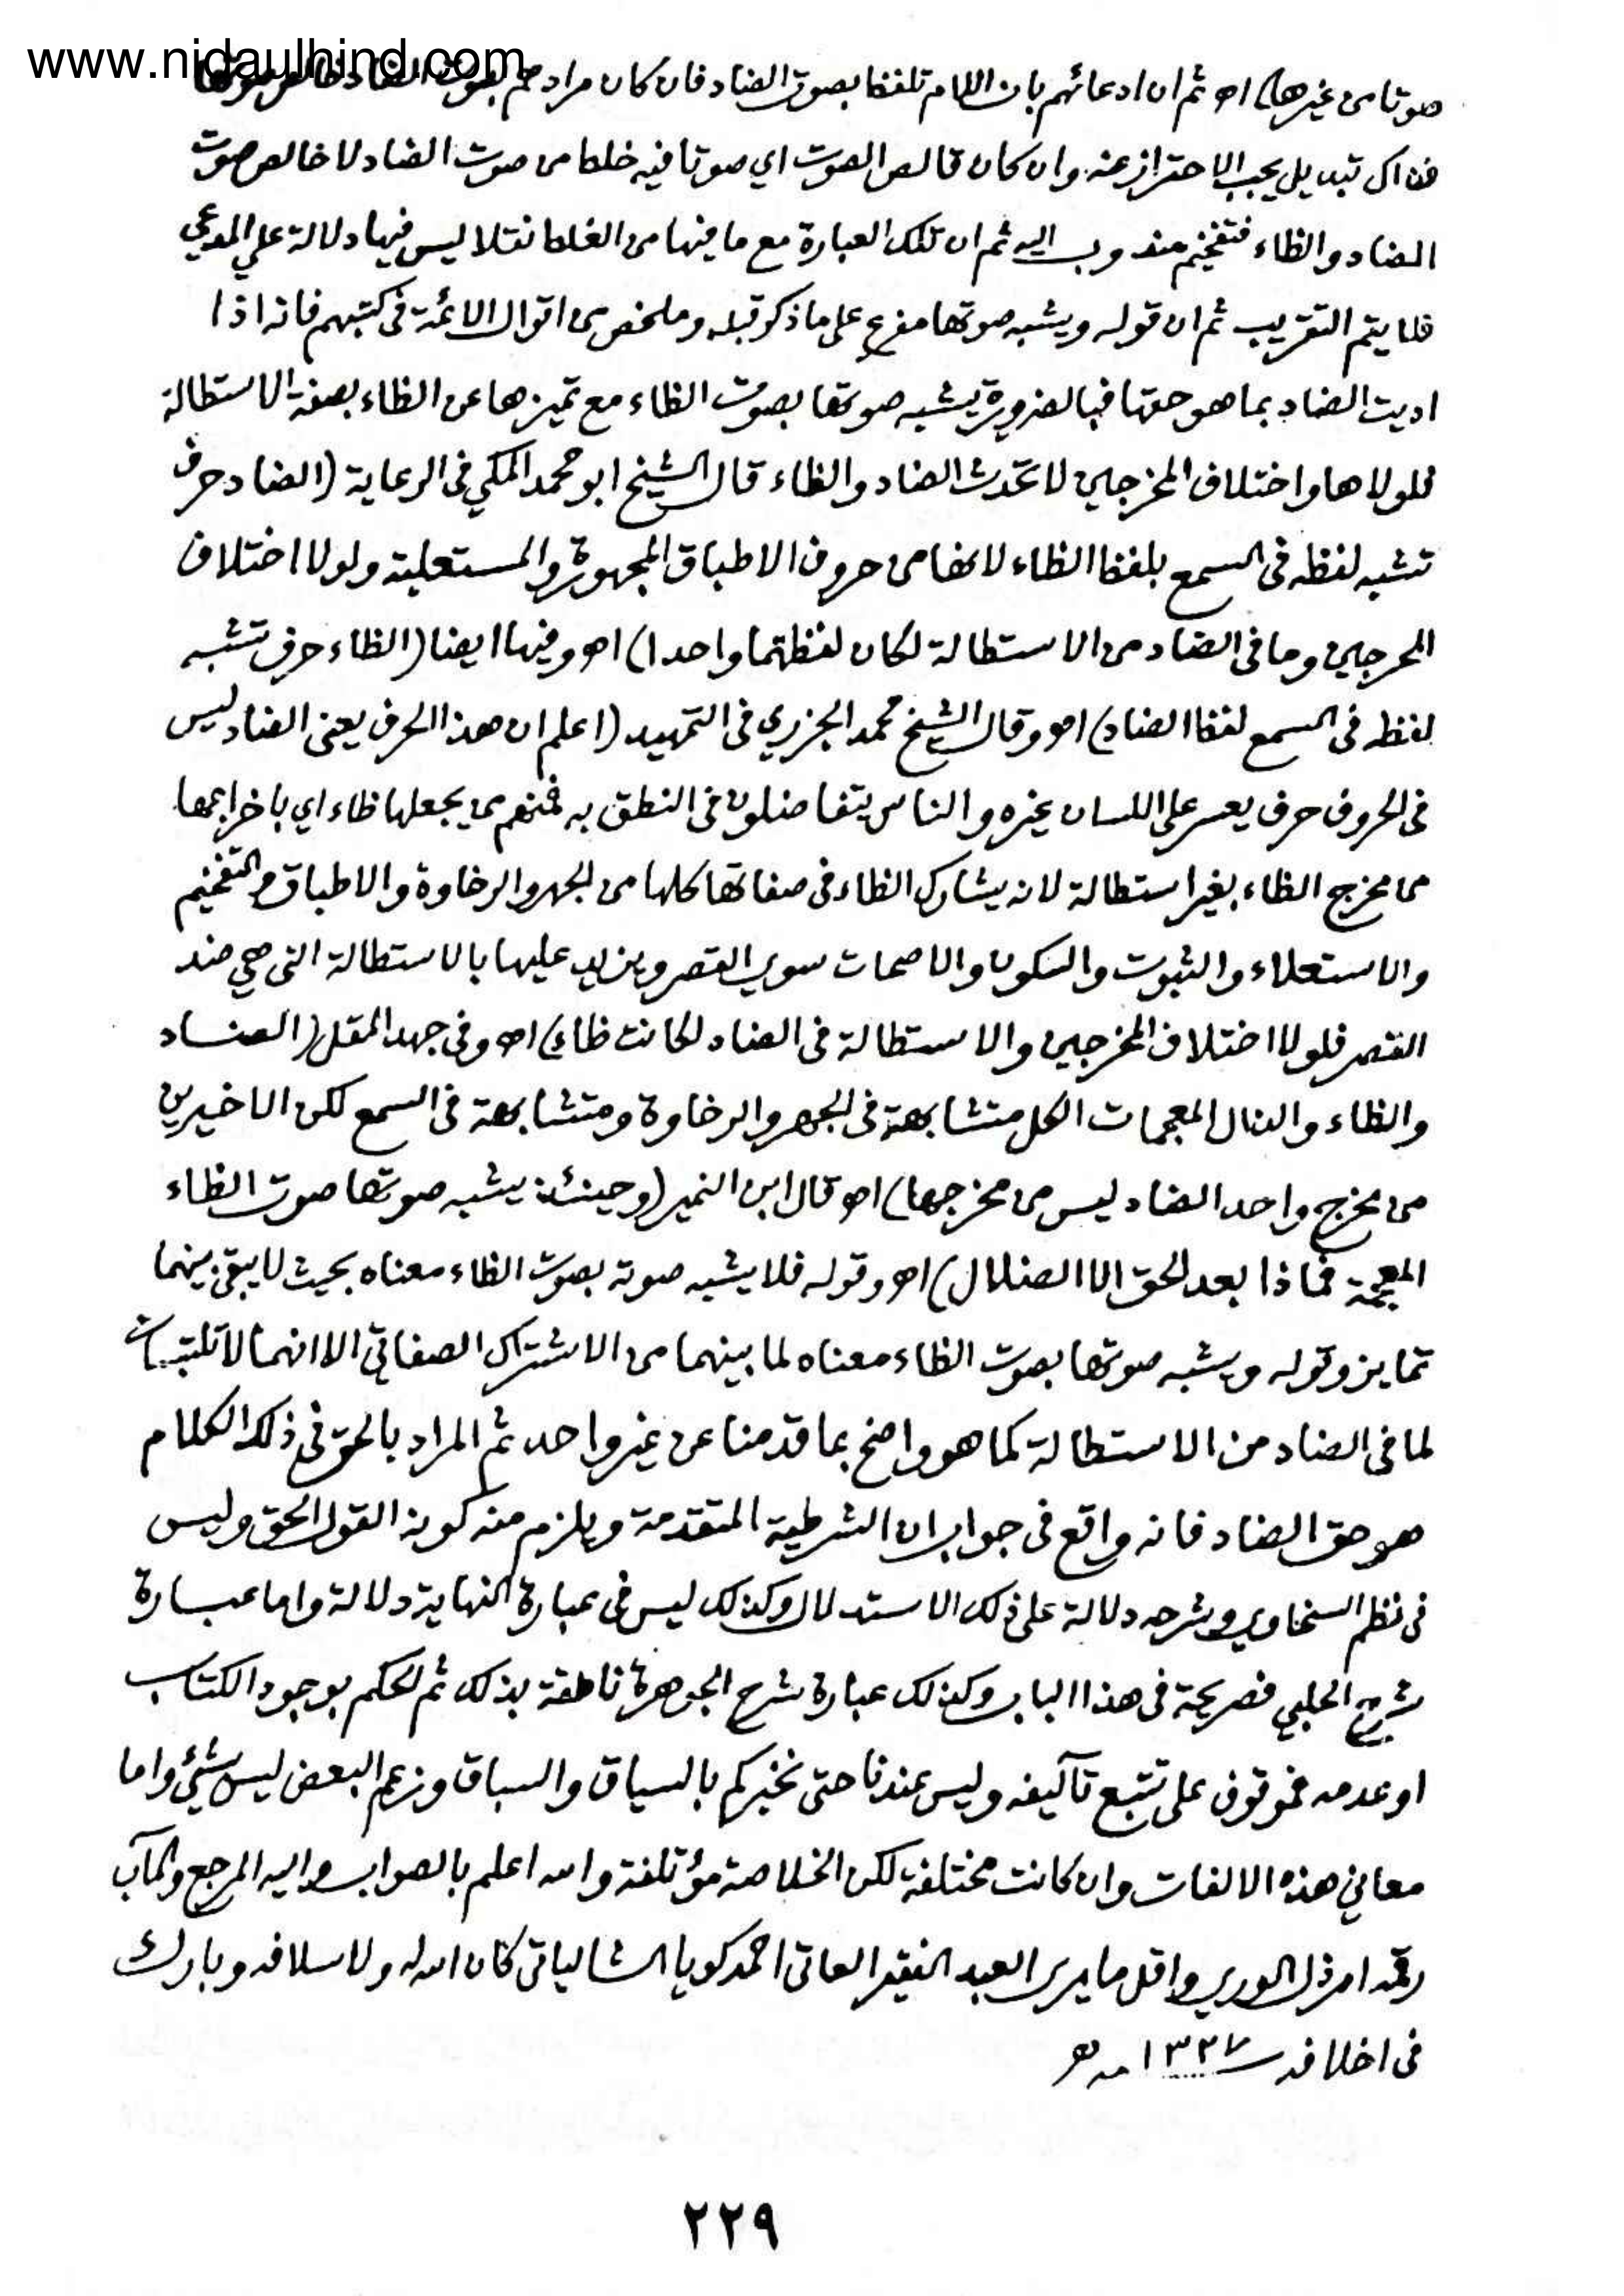 www.nidaulhind.com
صوتا من غيرها) اه ثم ان ادعائهم بان اللام تلفظا بصوت الضاد فان كان مرادهم بصوت الضاد خالص صوتها
فذاك تبديل يجب الاحتراز عنه وان كان قالص الصوت اي صوتا فيه خلط من صوت الضاد لا خالص صوت
الضاد والظاء فتفخيم مندوب اليه ثم ان تلك العبارة مع ما فيها من الغلط نقلا ليس فيها دلالة على المدعى
فلا يتم التقريب ثم ان قوله ويشبه صوتها مفرع على ما ذكر قبله وملخص من اقوال الائمة في كتبهم فانه اذا
اديت الضاد بما هو حقها فبالضرورة يشبه صوتها بصوت الظاء مع تميزها عن الظاء بصفة الاستطالة
فلولاها واختلاف المخرجين لاتحدت الضاد والظاء قال الشيخ ابو محمد المكي في الرعاية (الضاد حرف
تشبه لفظه في السمع بلفظ الظاء لانها من حروف الاطباق المجهورة والمستعلية ولولا اختلاف
المخرجين وما في الضاد من الاستطالة لكان لفظهما واحدا) اه وفيها ايضا (الظاء حرف تشبه
لفظه في السمع لفظ الضاد) اه وقال الشيخ محمد الجزري في التمهيد (اعلم ان هذا الحرف يعني الضاد ليس
في الحروف حرف يعسر على اللسان غيره والناس يتفاضلون في النطق به فمنهم من يجعلها ظاء اي باخراجها
من مخرج الظاء بغير استطالة لانه يشارك الظاء في صفاتها كلها من الجهر والرخاوة والاطباق والتفخيم
والاستعلاء والثبوت والسكون والاصمات سوى القصر ويزيد عليها بالاستطالة التي هي ضد
القصر فلولا اختلاف المخرجين والاستطالة في الضاد لكانت ظاء) اه وفي جهد المقل (الضاد
والظاء والذال المعجمات الكل متشابهة في الجهر والرخاوة ومتشابهة في السمع لكن الاخيرين
من مخرج واحد الضاد ليس من مخرجها) اه قال ابن النمير (وحينئذ يشبه صوتها صوت الظاء
المعجمة فماذا بعد الحق الا الضلال) اه وقوله فلا يشبه صوته بصوت الظاء معناه بحيث لا يبقى بينهما
تمايز وقوله ويشبه صوتها بصوت الظاء معناه لما بينهما من الاشتراك الصفاتي الا انهما لا تلتبسان
لما في الضاد من الاستطالة كما هو واضح بما قدمنا عن غير واحد ثم المراد بالحق في ذلك الكلام
هو حق الضاد فانه واقع في جواب ان الشرطية المتقدمة ويلزم منه كونه القول الحق وليس
في نظم السخاوي وشرحه دلالة على ذلك الاستدلال وكذلك ليس في عبارة النهاية دلالة واما عبارة
شرح الحلبي فصريحة في هذا الباب وكذلك عبارة شرح الجوهرة ناطقة بذلك ثم الحكم بوجود الكتاب
او عدمه فموقوف على تتبع تآليفه وليس عندنا حتى نخبركم بالسياق والسباق وزعم البعض ليس بشيء واما
معاني هذه الالفات وان كانت مختلفة لكن الخلاصة مؤتلفة والله اعلم بالصواب واليه المرجع والمآب
رقمه ارذل الورى واقل ما يرى العبد الفقير العاتي احمد كويا الشالياتي كان الله له ولاسلافه وبارك
في اخلافه سنة ١٣٢٧ هـ
٢٢٩